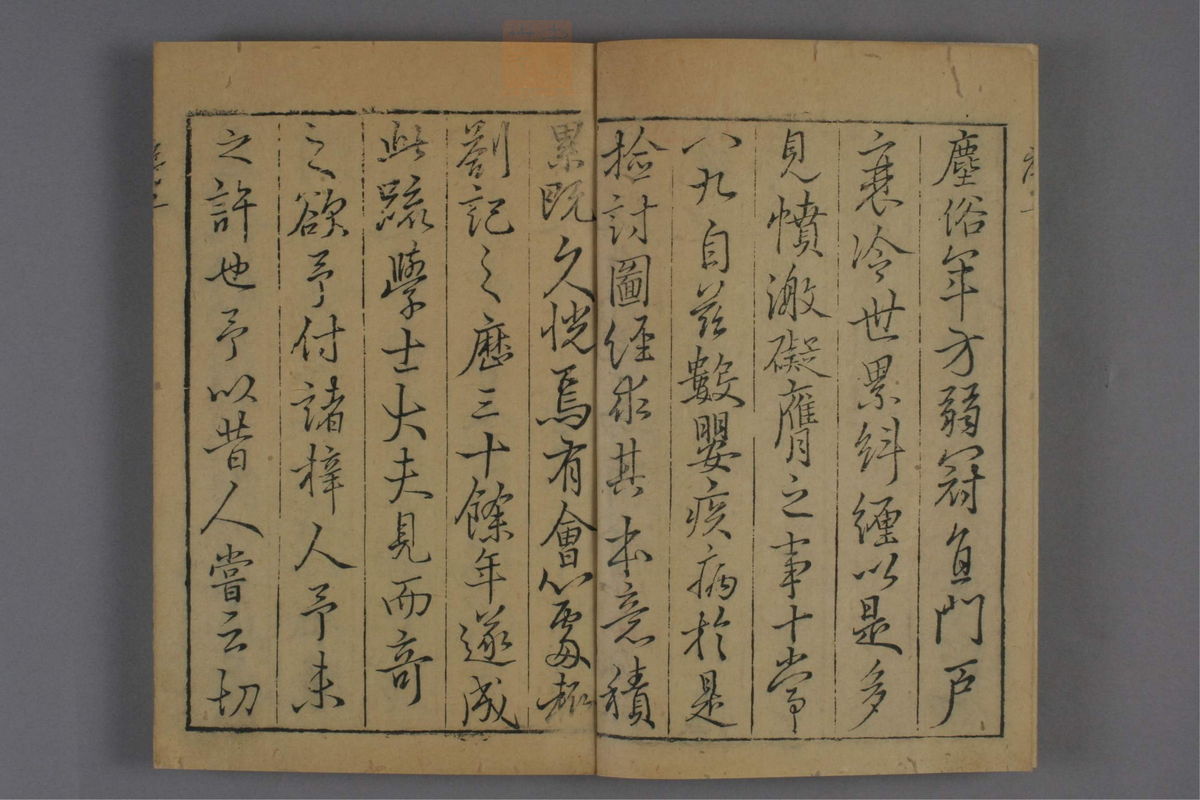 塵俗年方弱冠値門戸
衰冷世累糾纏以是多
見憤激礙膺之事十常
八九自茲數嬰疾病於是
撿討圖經求其本意積
累既久恍焉有會心處輙
劄記之歷三十餘年遂成
此䟽學士大夫見而奇
之欲予付諸梓人予未
之許也予以昔人嘗云切